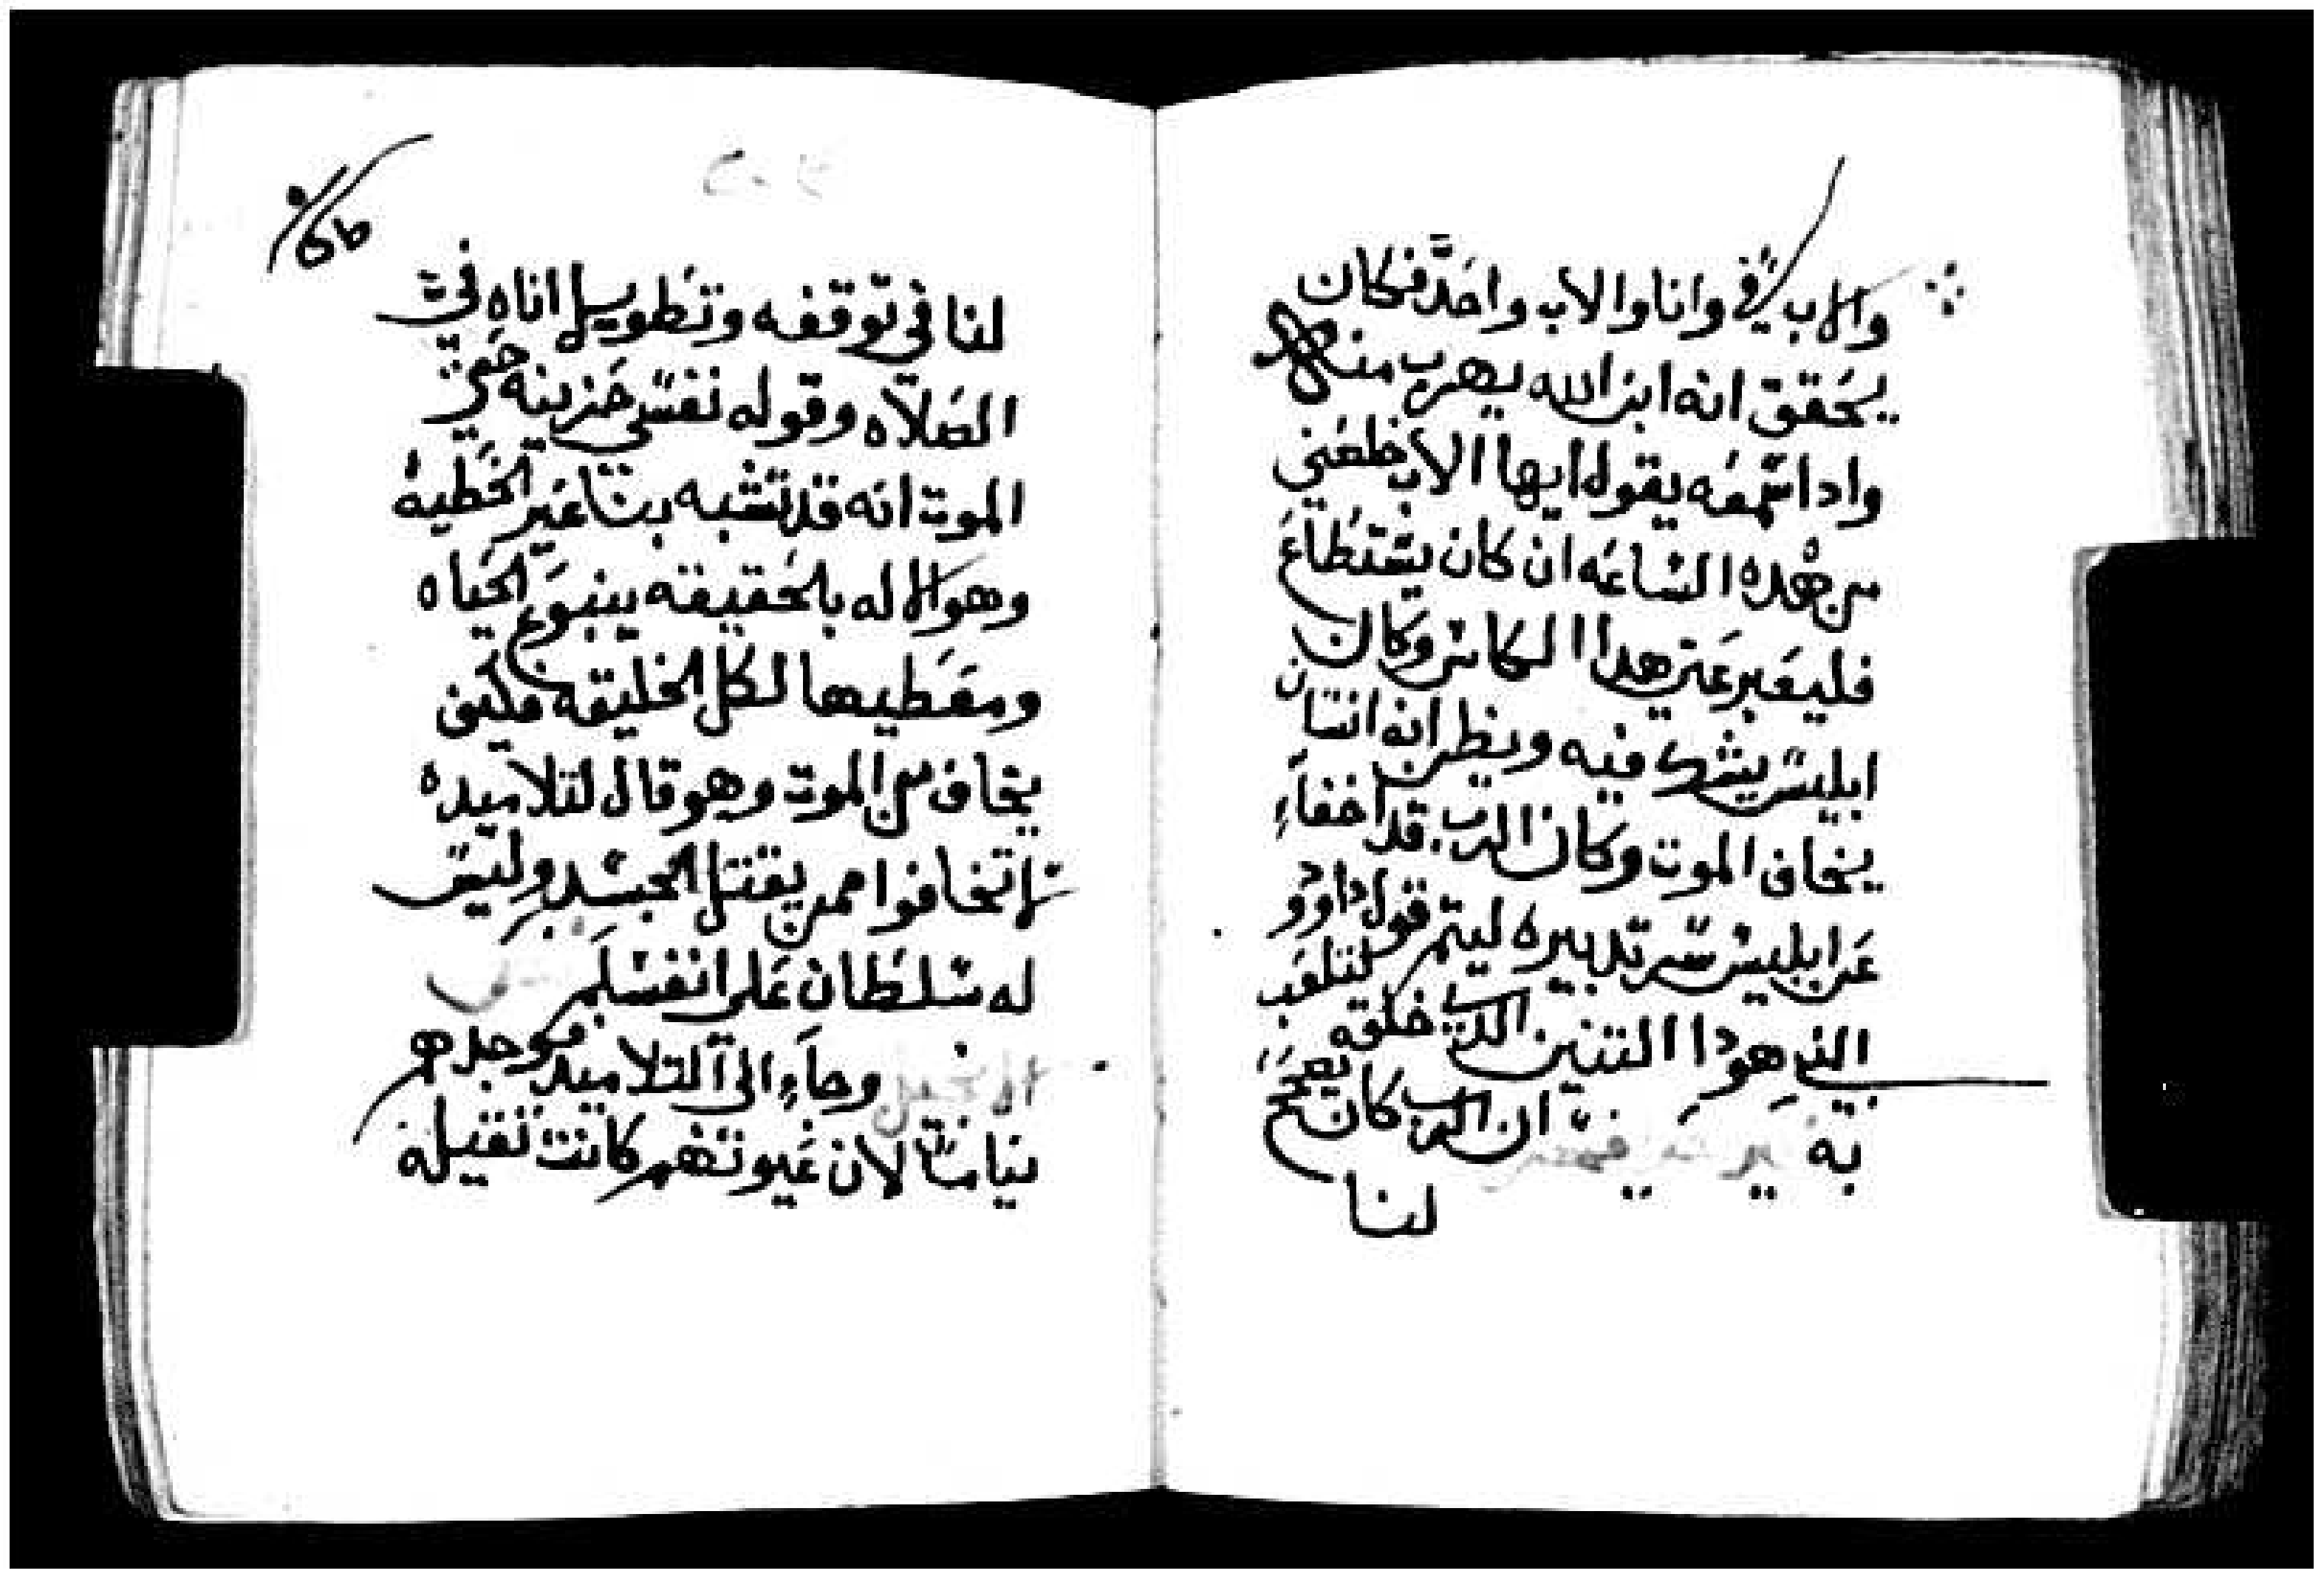 والاب فيّ وانا والاب واحد فكان
يحقق انه ابن الله يهرب منه
واذا سمعه يقول ايها الاب خلصني
من هده الساعه ان كان يستطاع
فليعبر عني هدا الكاس وكان
ابليس يشك فيه ويظن انه انسان
يخاف الموت وكان الرب قد اخفاء
عن ابليس سر تدبيره ليتم قول داوود
النبي هودا التنين الدي خلقه لتلعب
به ان الرب كان يصحح
لنا
لنا في توقفه وتطويل اناه في
الصلاه وقوله نفسي حزينه حتي
الموت انه قد تشبه بنا غير الخطيه
وهو الاله بالحقيقه ينبوع الحياه
ومعطيها لكل الخليقه فكيف
يخاف من الموت وهو قال لتلاميده
لا تخافوا ممن يقتل الجسد وليس
له سلطان علي انفسكم
وجاء الي التلاميد فوجدهم
نياما لان عيونهم كانت تقيله